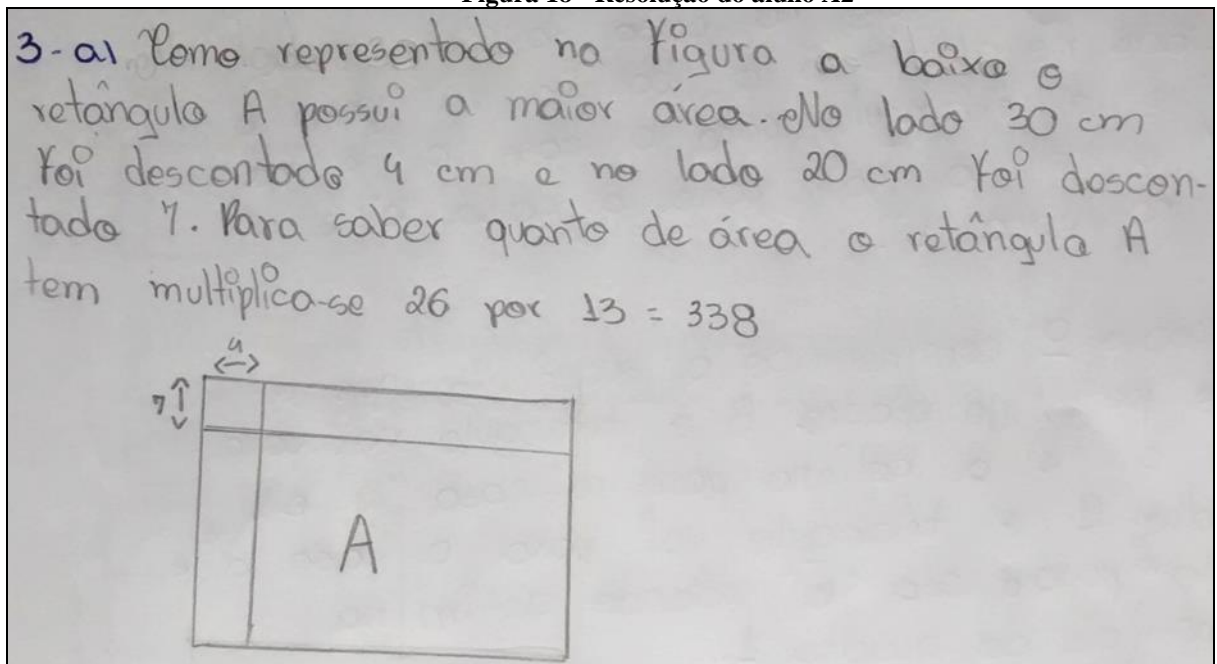 Figura 18 - Resolução do aluno A2
3-a) Como representado na figura a baixo o
retângulo A possui a maior área. No lado 30 cm
foi descontado 4 cm e no lado 20 cm foi descon-
tado 7. Para saber quanto de área o retângulo A
tem multiplica-se 26 por 13 = 338
4
7
A